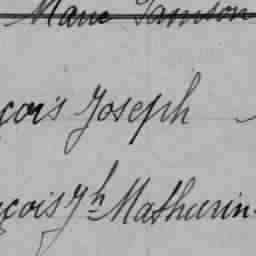 Marie Samson
çois Joseph
nçois Jh Mathurin